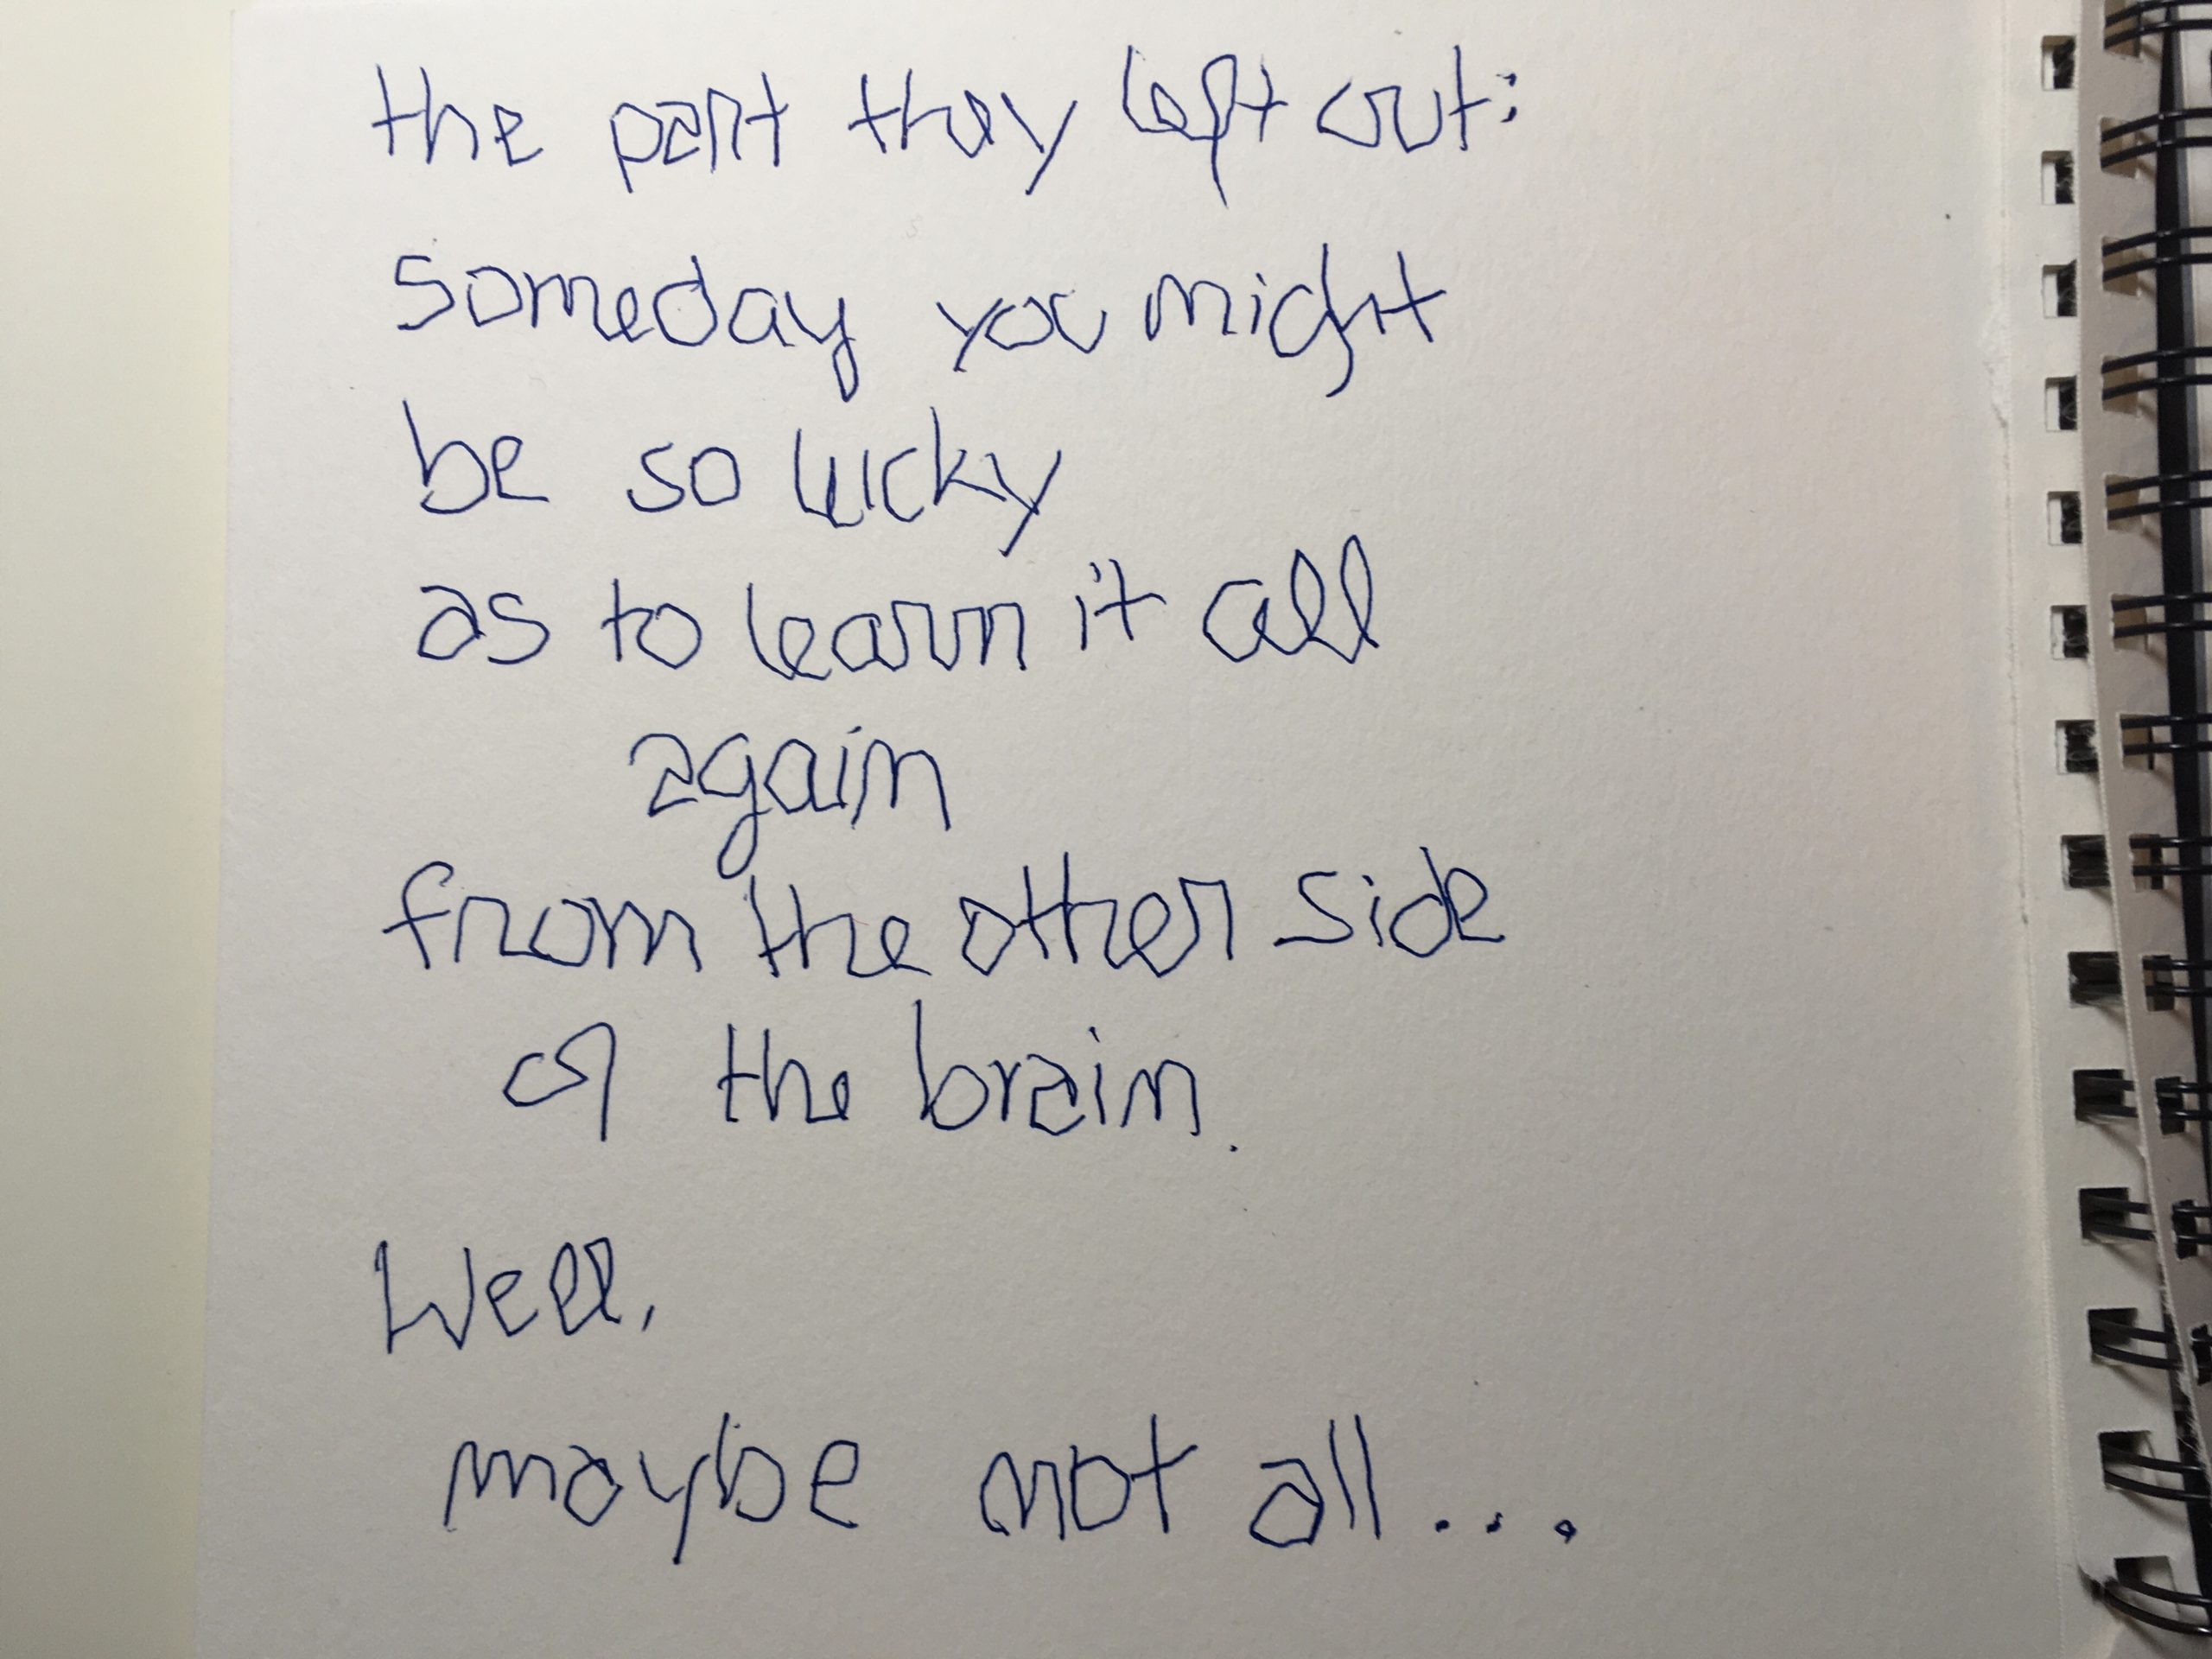 the part they left out:
someday you might
be so lucky
as to learn it all
again
from the other side
of the brain.
Well,
maybe not all...